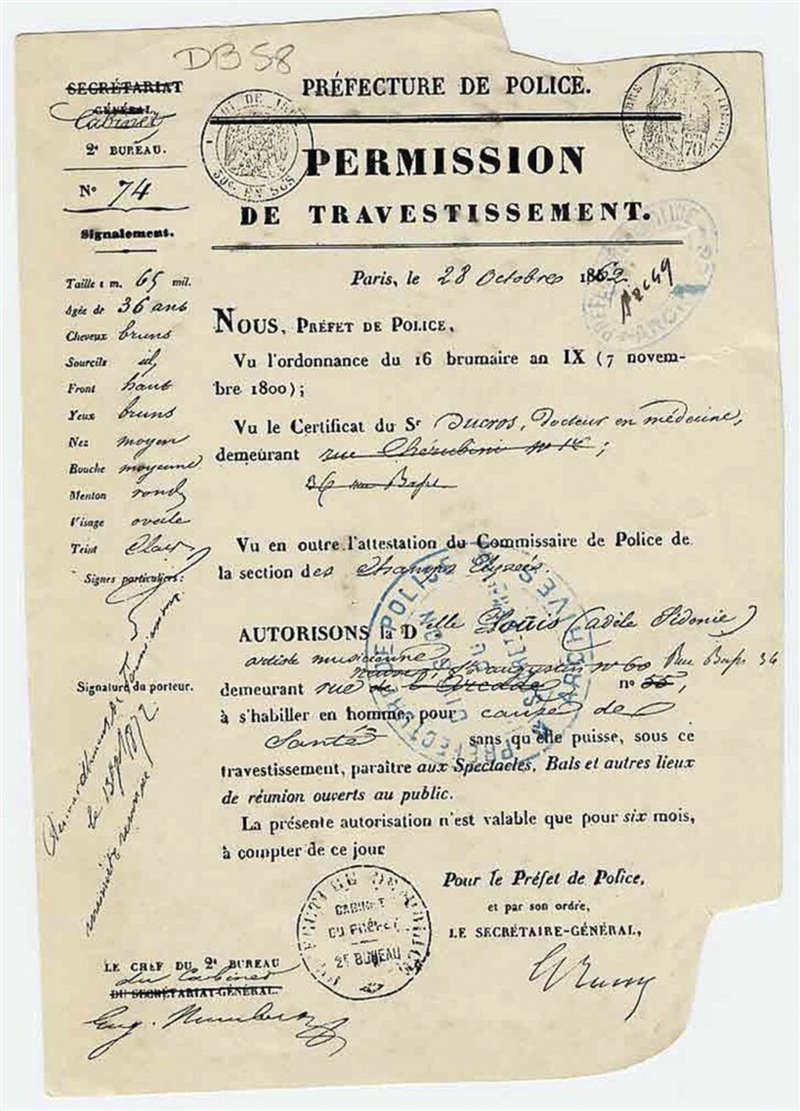 DB58
SECRÉTARIAT
GÉNÉRAL
Cabinet
2e BUREAU.
No 74
Signalement.
Taille 1 m. 65 mil.
âgée de 36 ans
Cheveux bruns
Sourcils id
Front haut
Yeux bruns
Nez moyen
Bouche moyenne
Menton rond
Visage ovale
Teint Clair
Signes particuliers:
Signature du porteur.
le 13
LE CHEF DU 2e BUREAU
du Cabinet
DU SECRÉTARIAT-GÉNÉRAL.
Eug.
PRÉFECTURE DE POLICE.
PERMISSION
DE TRAVESTISSEMENT.
Paris, le 28 Octobre 1862
NOUS, PRÉFET DE POLICE,
Vu l'ordonnance du 16 brumaire an IX (7 novem-
bre 1800);
Vu le Certificat du Sr Ducros, Docteur en médecine,
demeurant rue Chérubini no ;
36 rue
Vu en outre l'attestation du Commissaire de Police de
la section des Champs Elysées.
AUTORISONS la Delle Louis (adèle Sidonie)
artiste musicienne
neuve St augustin no 60 Rue 36
demeurant rue de l'Arcade no 55,
à s'habiller en homme, pour cause de
Santé sans qu'elle puisse, sous ce
travestissement, paraître aux Spectacles, Bals et autres lieux
de réunion ouverts au public.
La présente autorisation n'est valable que pour six mois,
à compter de ce jour
Pour le Préfet de Police,
et par son ordre,
LE SECRÉTAIRE-GÉNÉRAL,
PRÉFECTURE DE POLICE
CABINET
DU PRÉFET
2E BUREAU